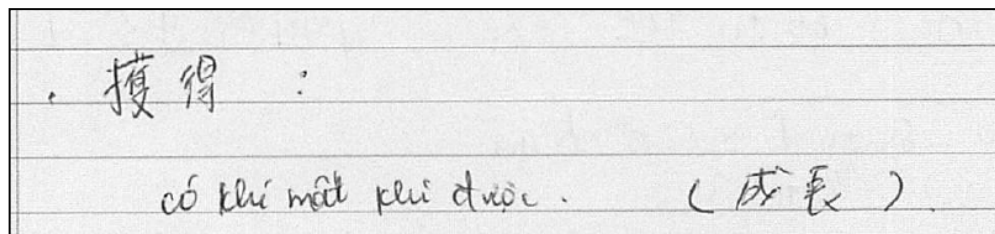 . 獲得 :
có khi mất khi được. (成長)